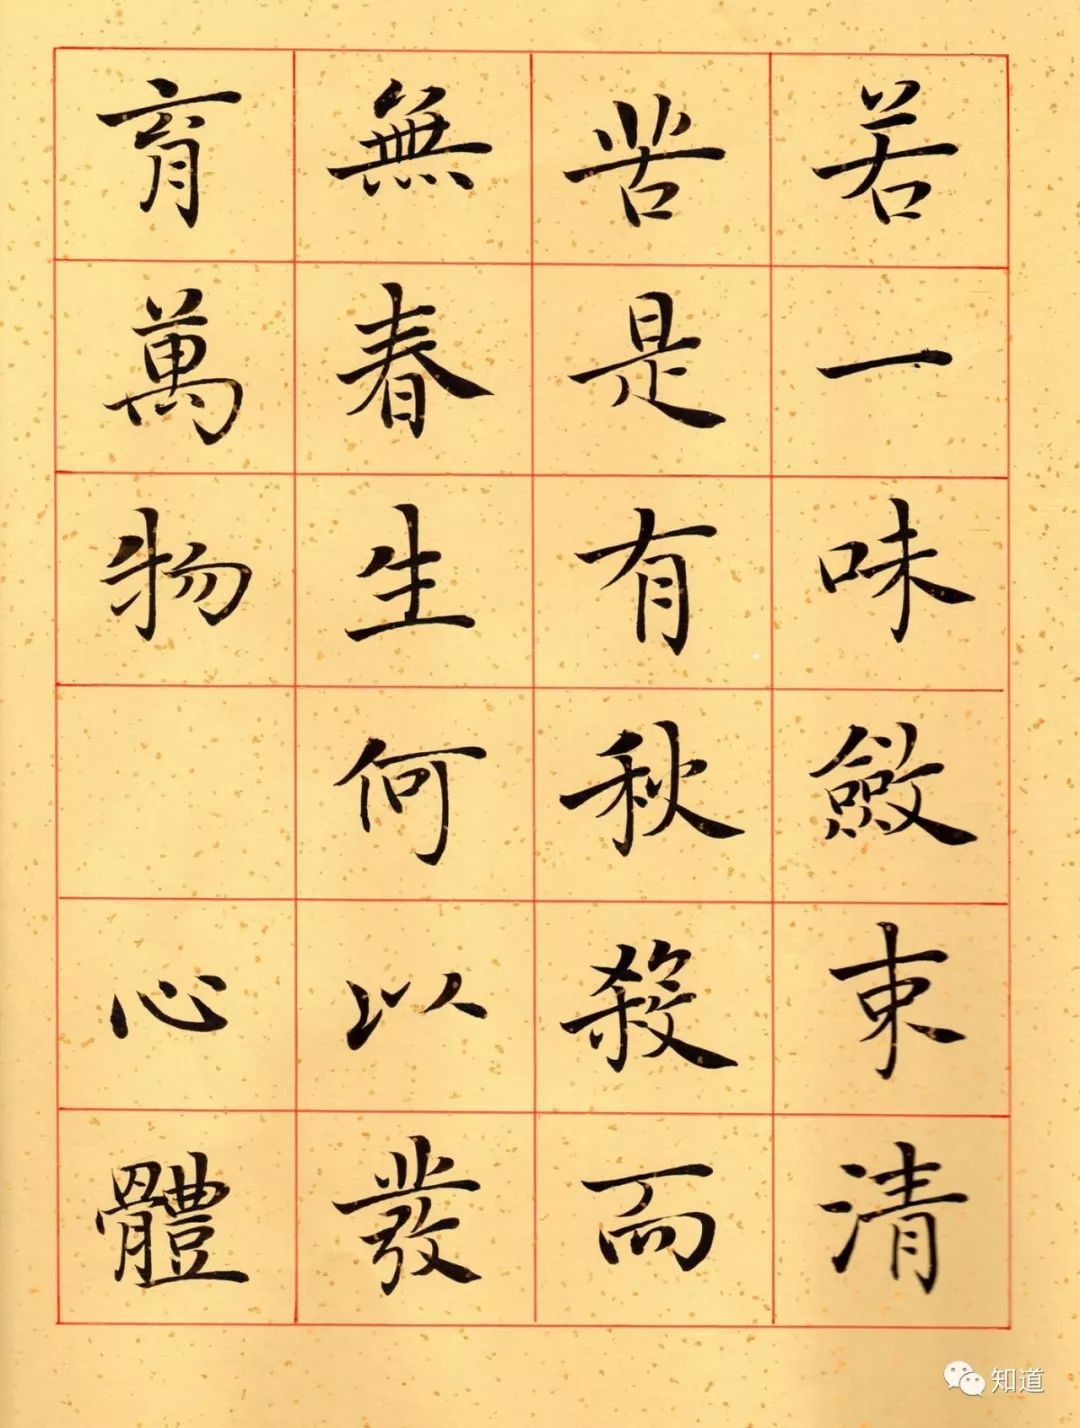 若一味斂束清
苦是有秋殺而
無春生何以發
育萬物 心體
知道